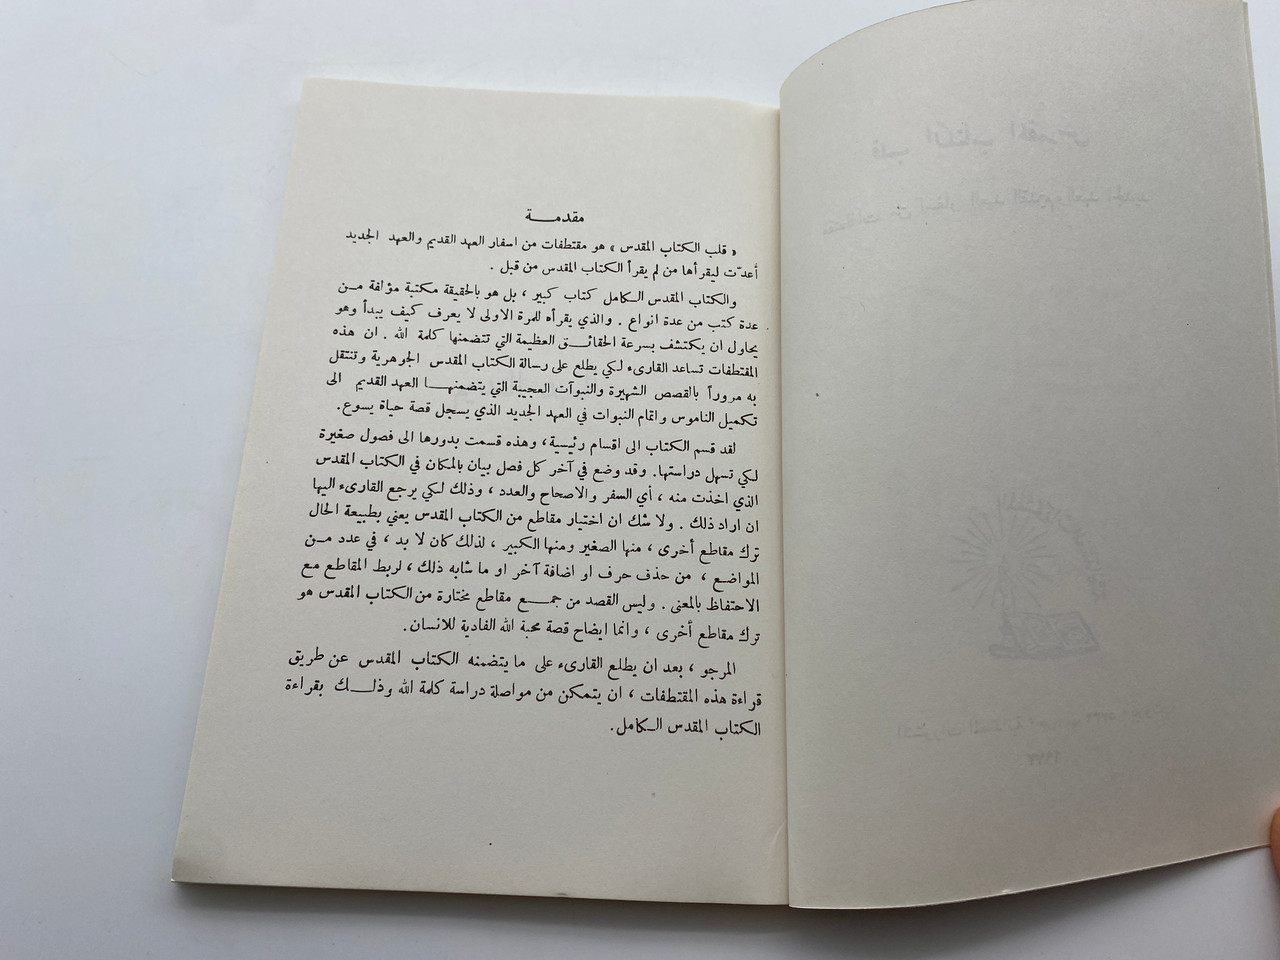 مقدمـــة
« قلب الكتاب المقدس » هو مقتطفات من اسفار العهد القديم والعهد الجديد
أعدّت ليقرأها من لم يقرأ الكتاب المقدس من قبل .
والكتاب المقدس الـكامل كتاب كبير ، بل هو بالحقيقة مكتبة مؤلفة مـن
عدة كتب من عدة انواع . والذي يقرأه للمرة الاولى لا يعرف كيف يبدأ وهو
يحاول ان يكتشف بسرعة الحقائـــق العظيمة التي تتضمنها كلمة الله . ان هذه
المقتطفات تساعد القارىء لكي يطلع على رسالة الكتاب المقدس الجوهرية وتنتقل
به مروراً بالقصص الشهيرة والنبوآت العجيبة التي يتضمنهـــا العهد القديم الى
تكميل الناموس واتمام النبوات في العهد الجديد الذي يسجل قصة حياة يسوع.
لقد قسم الكتاب الى اقسام رئيسية، وهذه قسمت بدورها الى فصول صغيرة
لكي تسهل دراستها. وقد وضع في آخر كل فصل بيان بالمكان في الكتاب المقدس
الذي اخذت منه ، أي السفر والاصحاح والعدد ، وذلك لـكي يرجع القارىء اليها
ان اراد ذلك . ولا شك ان اختيار مقاطع من الكتاب المقدس يعني بطبيعة الحال
ترك مقاطع أخرى ، منها الصغير ومنها الكبير ، لذلك كان لا بد ، في عدد مـن
المواضع ، من حذف حرف او اضافة آخر او ما شابه ذلك ، لربط المقاطع مع
الاحتفاظ بالمعنى . وليس القصد من جمـــع مقاطع مختارة من الكتاب المقدس هو
ترك مقاطع أخرى ، وانما ايضاح قصة محبة الله الفادية للانسان.
المرجو ، بعد ان يطلع القارىء على ما يتضمنه الكتاب المقدس عن طريق
قراءة هذه المقتطفات ، ان يتمكن من مواصلة دراسة كلمة الله وذلـــك بقراءة
الكتاب المقدس الـكامل.
قلب الكتاب المقدس
مقتطفات من اسفار العهد القديم والعهد الجديد